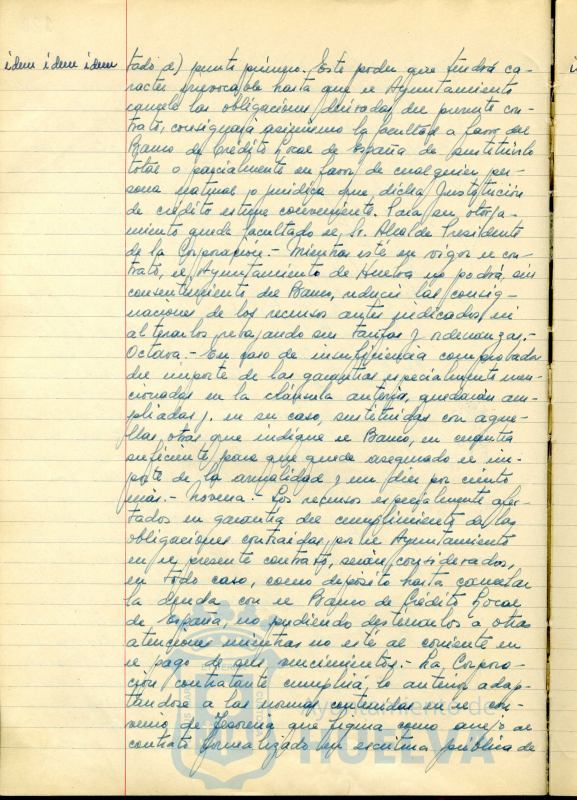 idem idem idem
tado d) punto primero. Este poder que tendrá ca-
racter irrevocable hasta que el Ayuntamiento
cancele las obligaciones derivadas del presente con-
trato, consignará asimismo la facultad a favor del
Banco de Crédito Local de España de sustituirlo
total o parcialmente en favor de cualquier per-
sona natural o jurídica que dicha Institución
de crédito estime conveniente. Para su otorga-
miento queda facultado el Sr. Alcalde Presidente
de la Corporación.- Mientras esté en vigor el con-
trato, el Ayuntamiento de Huelva no podrá, sin
consentimiento del Banco, reducir las consig-
naciones de los recursos antes indicados, ni
alterarlos rebajando sus tarifas y ordenanzas.-
Octava.- En caso de insuficiencia comprobada
del importe de las garantías especialmente men-
cionadas en la cláusula anterior, quedarán am-
pliadas y, en su caso, sustituidas con aque-
llas otras que indique el Banco, en cuantía
suficiente para que quede asegurado el im-
porte de la anualidad y un diez por ciento
más.- Novena.- Los recursos especialmente afec-
tados en garantía del cumplimiento de las
obligaciones contraidas por el Ayuntamiento
en el presente contrato, serán considerados,
en todo caso, como depósito hasta cancelar
la deuda con el Banco de Crédito Local
de España, no pudiendo destinarlos a otras
atenciones mientras no esté al corriente en
el pago de sus vencimientos.- La Corpora-
ción contratante cumplirá lo anterior adap-
tándose a las normas contenidas en el con-
venio de Tesorería que figura como anejo al
contrato formalizado en escritura pública de
Ayuntamiento de
HUELVA